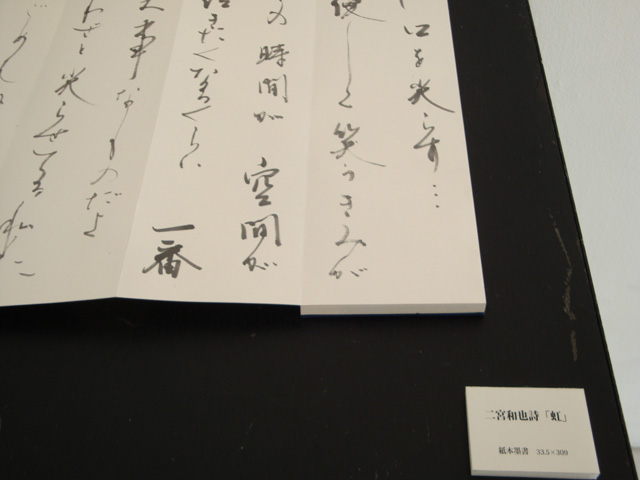 口を尖らす…
優しく笑うきみが
の時間が 空間が
泣きたくなるくらい 一番
大事なものだよ
わざと
二宮和也詩「虹」
紙本墨書 33.5×309